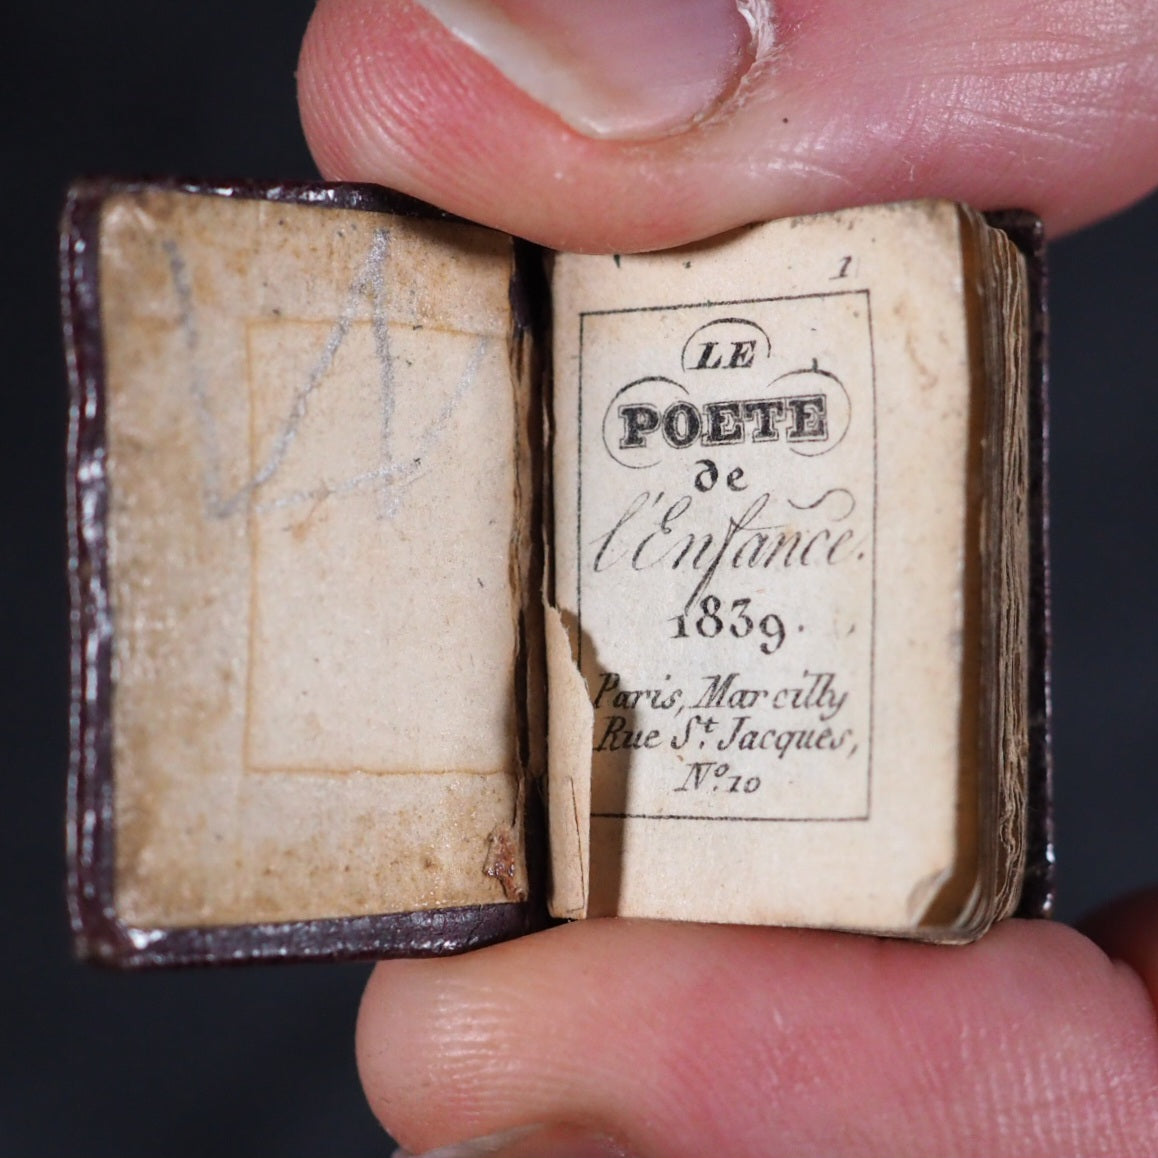 1
LE
POETE
de
l'Enfance.
1839.
Paris, Marcilly
Rue St. Jacques,
No. 10